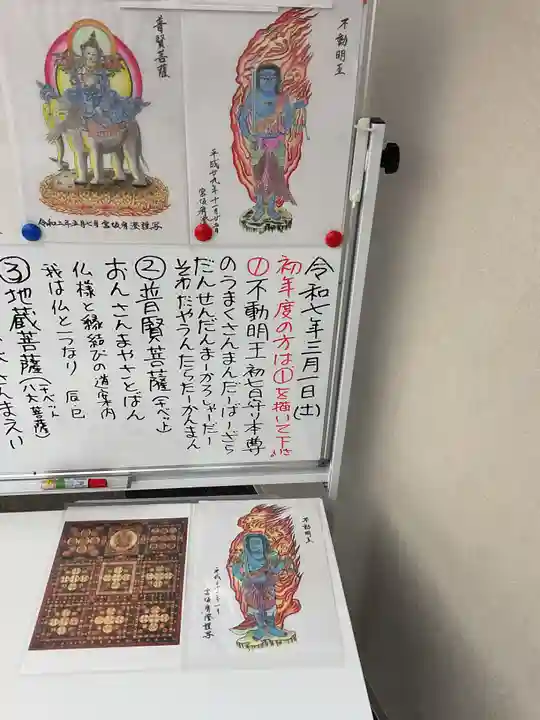 普賢菩薩
不動明王
平成廿九年十一月廿日
令和二年五月七日
令和七年三月一日(土)
初年度の方は①を描いて下さい
①不動明王 初七日守り本尊
のうまくさんまんだーばーざら
だんせんだんまーかろしゃーだー
そわたやうんたらたーかんまん
②普賢菩薩(チベット)
おんさんまやさとばん
仏様と縁結びの道案内
我は仏とつながり 辰・巳
③地蔵菩薩(チベット)(八大菩薩)
不動明王